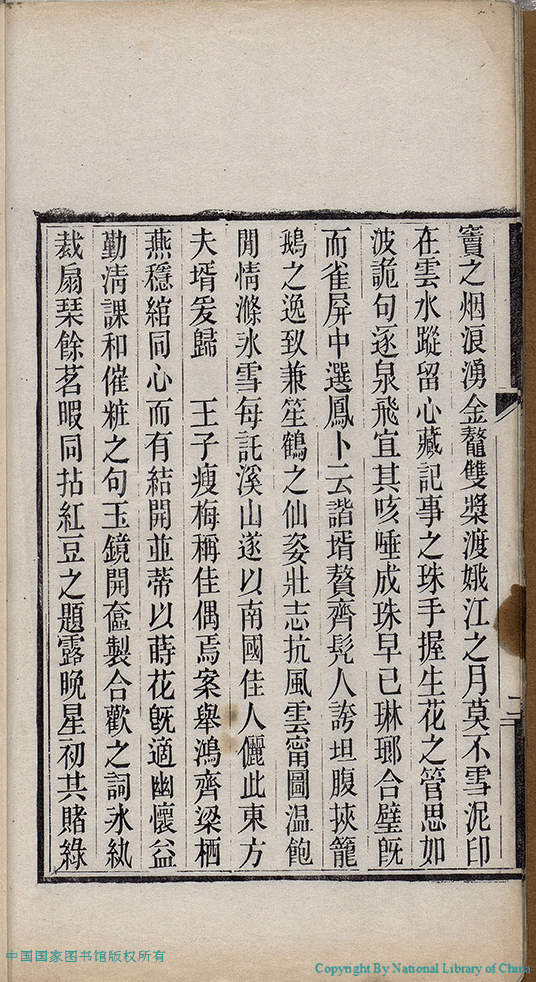 竇之烟浪湧金鼇雙槳渡娥江之月莫不雪泥印
在雲水蹤留心藏記事之珠手握生花之管思如
波詭句逐泉飛宜其咳唾成珠早已琳瑯合璧旣
而雀屏中選鳳卜云諧壻贅齊髠人誇坦腹挾籠
鵝之逸致兼笙鶴之仙姿壯志抗風雲甯圖温飽
閒情滌冰雪每託溪山遂以南國佳人儷此東方
夫壻爰歸 王子瘦梅稱佳偶焉案舉鴻齊梁栖
燕穩綰同心而有結開並蒂以蒔花旣適幽懷益
勤淸課和催粧之句玉鏡開奩製合歡之詞冰紈
裁扇琹餘茗暇同拈紅豆之題露晩星初共賭綠
二
中国国家图书馆版权所有
Copyright By National Library of China